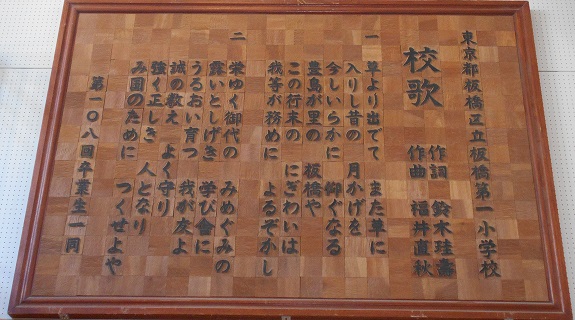 東京都板橋区立板橋第一小学校
校歌
作詞 鈴木珪壽
作曲 福井直秋
一 草より出でて また草に
入りし昔の 月かげを
今しいらかに 仰ぐなる
豊島が里の 板橋や
この行末の にぎわいは
我等が務めに よるぞかし
二 栄ゆく御代の みめぐみの
露いとしげき 学び舎に
うるおい育つ 我が友よ
誠の教え よく守り
強く正しき 人となり
み国のために つくせよや
第一〇八回卒業生一同